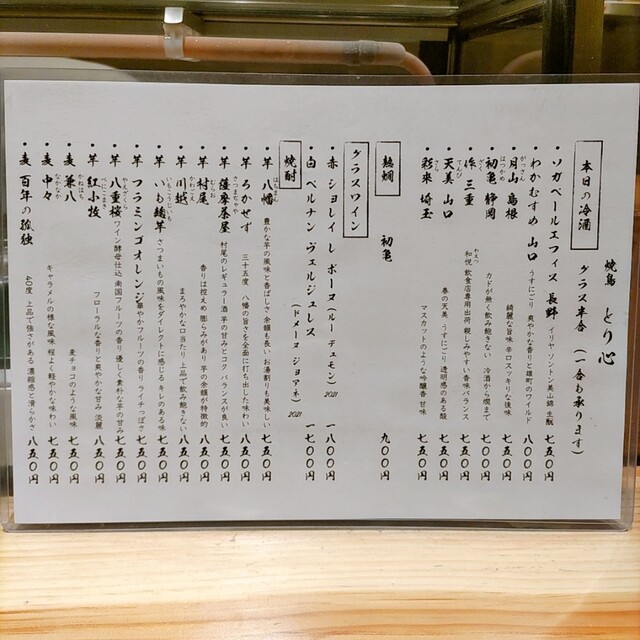 焼鳥 とり心
本日の冷酒 グラス半合 (一合も承ります)
・ソガペールエフィス 長野 イリヤ・ソント 美山錦 生酛 七五〇円
・わかむすめ 山口 うすにごり 爽やかな香りと雄町のワイルド 八〇〇円
・月山 島根 がっさん 綺麗な旨味 辛口スッキリな後味 七五〇円
・初亀 静岡 はつかめ カドが無く飲み飽きない 冷酒から燗まで 七〇〇円
・作 三重 ざく 和悦 わえつ 飲食店専用出荷 親しみやすい香味バランス 七五〇円
・天美 山口 てんび 春の天美 うすにごり 透明感のある酸 七五〇円
・彩來 埼玉 さら マスカットのような吟醸香 甘味 七五〇円
熱燗 初亀 九〇〇円
グラスワイン
・赤 ショレイ レ ボーヌ (ルー デュモン) 2021 一八〇〇円
・白 ベルナン ヴェルジュレス (ドメーヌ ジョアネ) 2021 一七〇〇円
焼酎
・芋 八幡 はちまん 豊かな芋の風味と香ばしさ 余韻も長い お湯割りも美味しい 七五〇円
・芋 ろかせず 三十五度 八幡の旨さを全面に打ち出した味わい 八五〇円
・芋 薩摩茶屋 さつまちゃや 村尾のレギュラー酒 芋の甘みとコク バランスが良い 七五〇円
・芋 村尾 むらお 香りは控えめ 膨らみがあり 芋の余韻が特徴的 八五〇円
・芋 川越 かわごえ まろやかな口当たり 上品で飲み飽きない 八五〇円
・芋 いも麹芋 いもこうじいも さつまいもの風味をダイレクトに感じる キレのある味 七五〇円
・芋 フラミンゴオレンジ 華やかフルーツの香り、ライチっぽさ 七五〇円
・芋 八重桜 やえざくら ワイン酵母仕込 南国フルーツの香り 優しく素朴な芋の甘み 七五〇円
・芋 紅小牧 べにこまき フローラルな香りと爽やかな甘み 淡麗 八五〇円
・麦 兼八 かねはち 麦チョコのような風味 八五〇円
・麦 中々 なかなか キャラメルの様な風味 程よく軽やかな味わい 七五〇円
・麦 百年の孤独 40度 上品で強さがある 濃縮感と滑らかさ 八五〇円